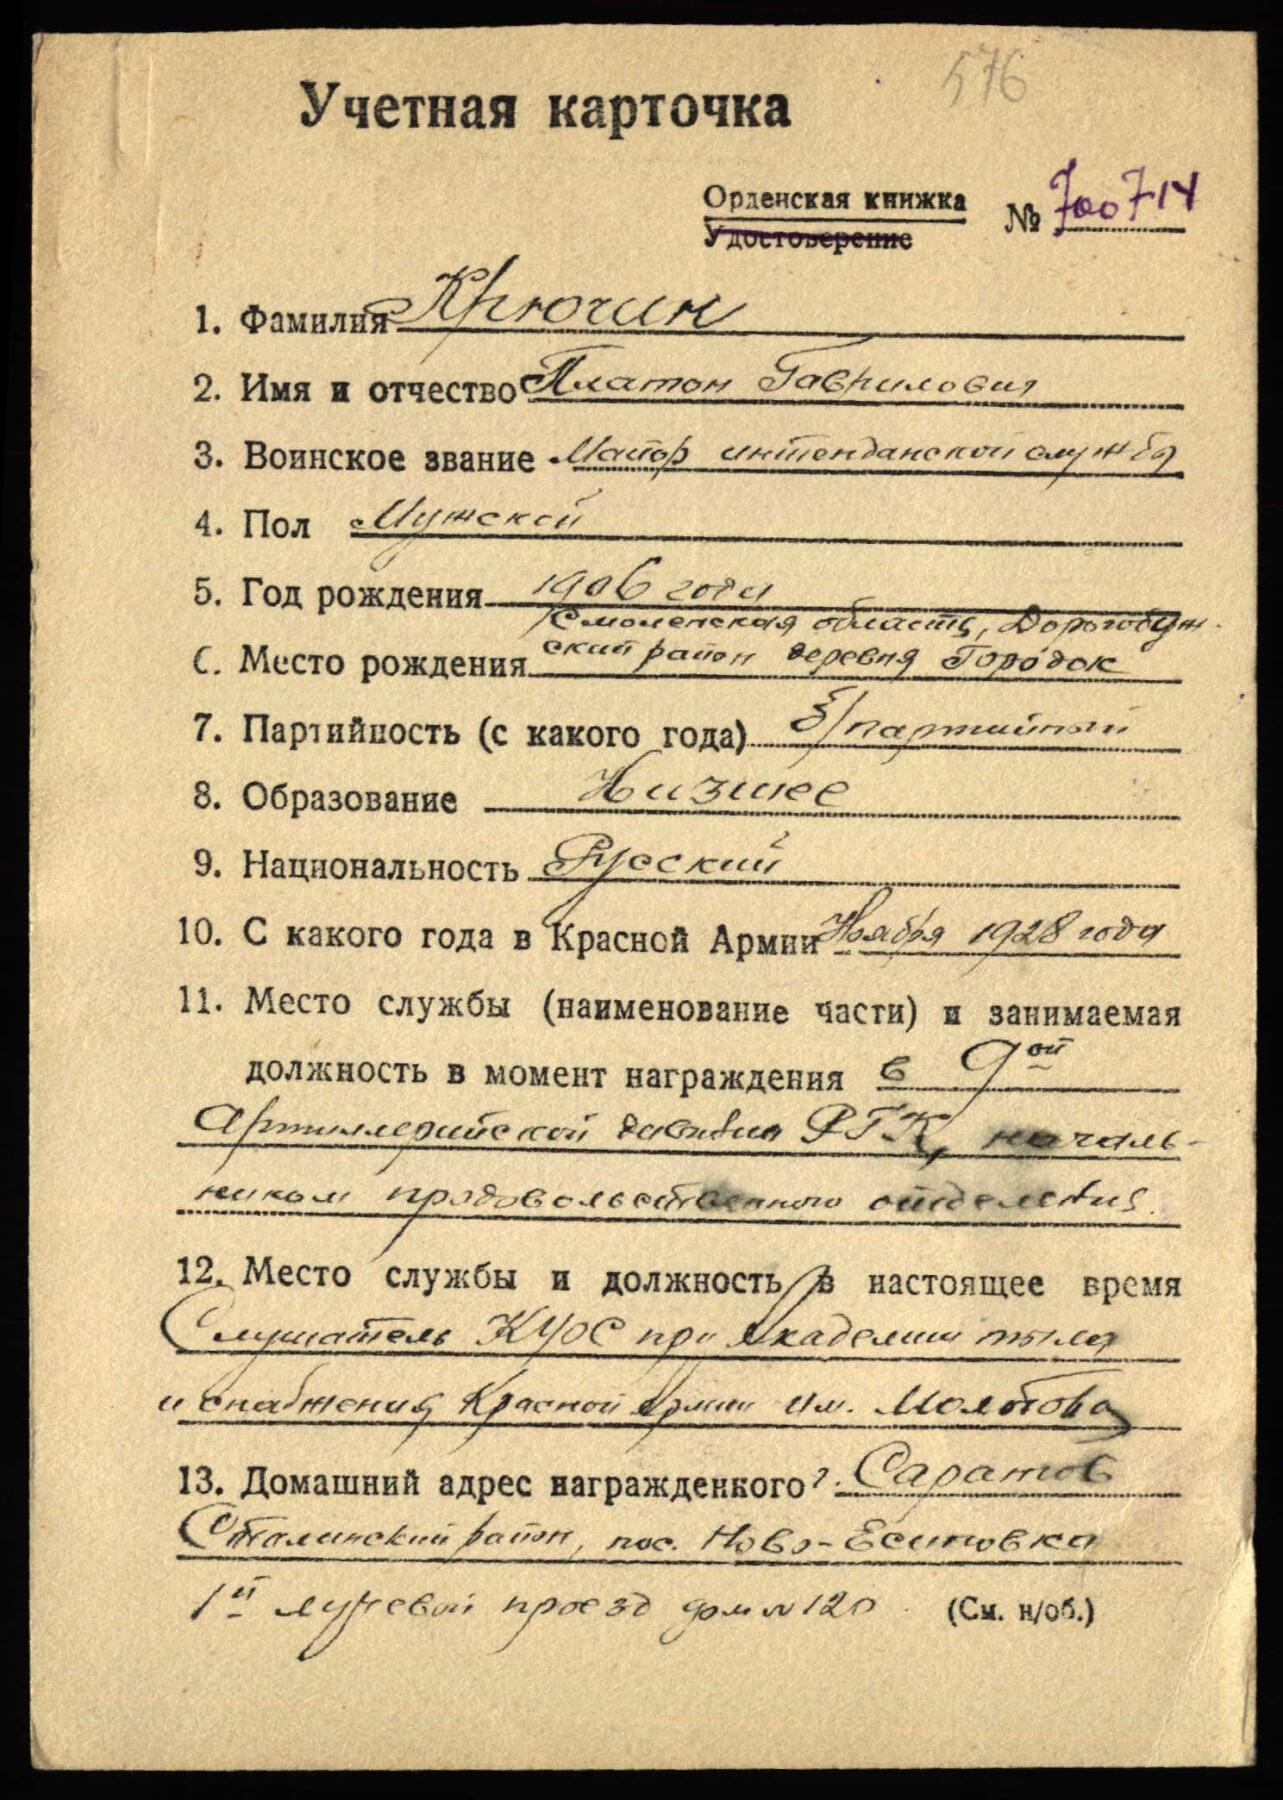 576
Учетная карточка
Орденская книжка № 700714
Удостоверение
1. Фамилия Крючин
2. Имя и отчество Платон Гаврилович
3. Воинское звание Майор интенданской службы
4. Пол Мужской
5. Год рождения 1906 года
Смоленская область, Дорогобуж-
6. Место рождения ский район деревня Городок
7. Партийность (с какого года) б/партийный
8. Образование Низшее
9. Национальность Русский
10. С какого года в Красной Армии Ноября 1928 года
11. Место службы (наименование части) и занимаемая
должность в момент награждения в 9ой
Артиллерийской дивизии РГК, началь-
ником продовольственного отделения.
12. Место службы и должность в настоящее время
Слушатель КУОС при Академии тыла
и снабжения Красной Армии им. Молотова
13. Домашний адрес награжденного г. Саратов
Сталинский район, пос. Ново-Есиповка
1й проезд дом № 120 (См. н/об.)